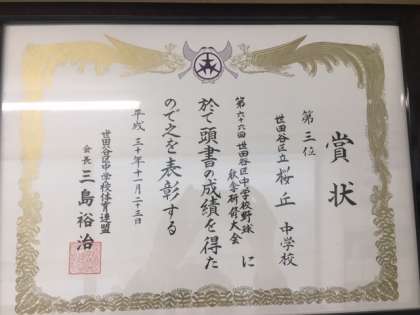 賞状
第三位
世田谷区立桜丘中学校
第六十六回世田谷区中学校野球
秋季研修大会
に
於て頭書の成績を得た
ので之を表彰する
平成三十年十一月二十三日
世田谷区中学校体育連盟
会長 三島裕治